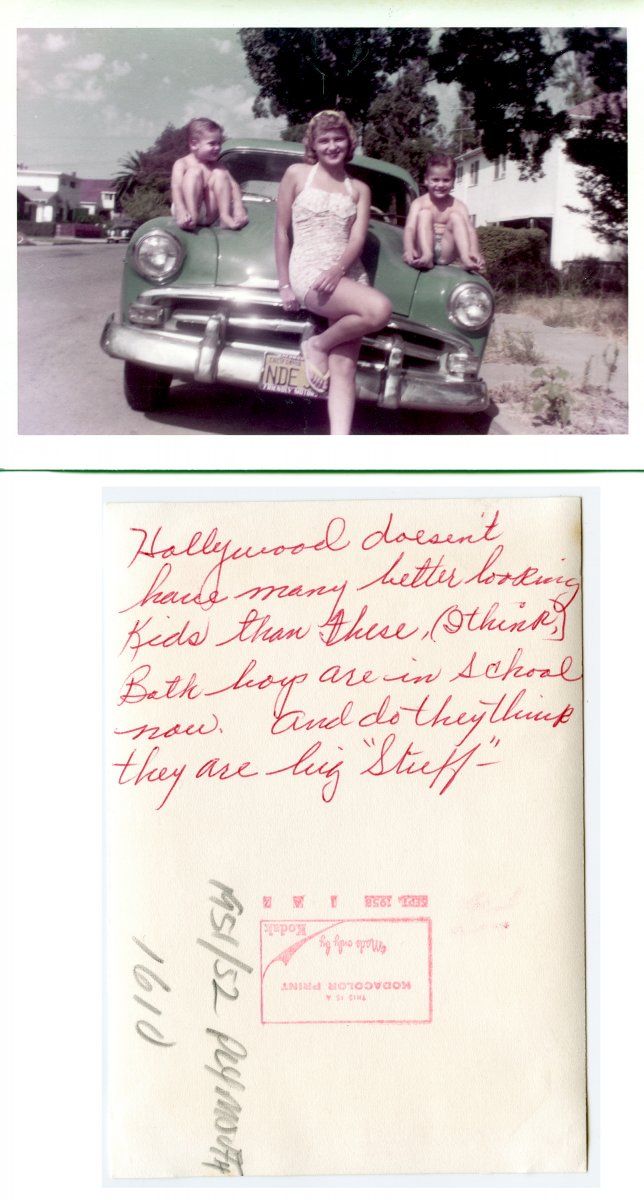 CALIFORNIA
NDE
FRIENDLY MOTORS
Hollywood doesn't
have many better looking
Kids than these, (I think,)
Both boys are in school
now. And do they think
they are big "Stuff"-
1951/52 PLYMOUTH
1610
SEPT. 1958
THIS IS A
KODACOLOR PRINT
Made only by
Kodak